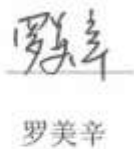 罗美辛
罗美辛